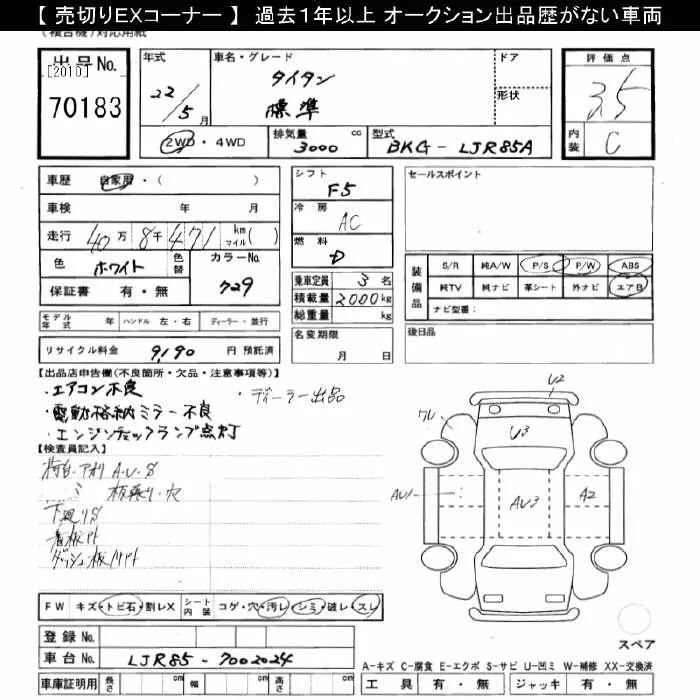 【 売切りEXコーナー 】 過去１年以上 オークション出品歴がない車両
(複合機)対応用紙
出品No. [2010] 70183
年式 22/5月
車名・グレード タイタン 標準
ドア
形状
評価点 3.5
内装 C
2WD・4WD
排気量 3000 cc
型式 BKG-LJR85A
車歴 自家用・( )
車検 年 月
走行 40万8千471 km マイル( )
色 ホワイト 色替 カラーNo. 729
保証書 有・無
モデル年式 年 ハンドル 左・右 ディーラー・並行
リサイクル料金 9,190 円 預託済
シフト F5
冷房 AC
燃料 D
乗車定員 3名
積載量 2000kg
総重量 kg
名変期限 月 日
セールスポイント
装備品 S/R 純A/W P/S P/W ABS
純TV 純ナビ 革シート 外ナビ エアB
ナビ型番：
後日品
【出品店申告欄(不良箇所・欠品・注意事項等)】
・エアコン不良 ・ディーラー出品
・電動格納ミラー不良
・エンジンチェックランプ点灯
【検査員記入】
荷台・アオリ A.U.S
板張り・穴
下廻りS
看板跡
U2
U3
AU1
AU3
A2
FW キズ・トビ石・割レX シート内装 コゲ・穴・汚レ・シミ・破レ・スレ
登録 No.
車台 No. LJR85-7002024
車庫証明用 長さ cm 幅 cm 高さ cm
スペア
A-キズ C-腐食 E-エクボ S-サビ U-凹ミ W-補修 XX-交換済
工具 有・無 ジャッキ 有・無